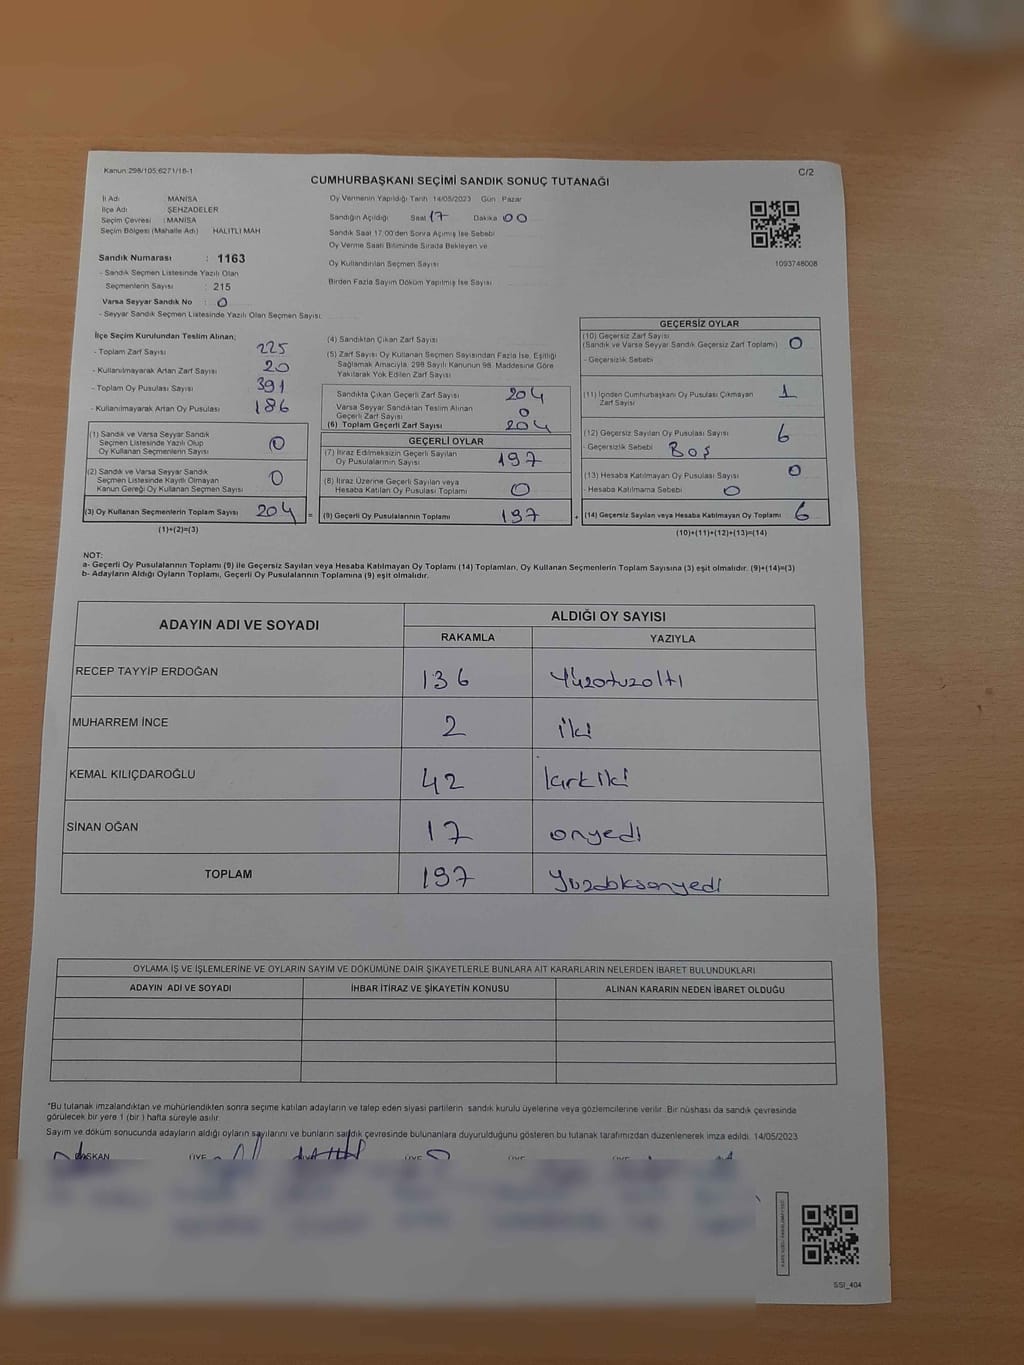 Kanun:298/105;6271/18-1
C/2
CUMHURBAŞKANI SEÇİMİ SANDIK SONUÇ TUTANAĞI
İl Adı MANİSA
İlçe Adı ŞEHZADELER
Seçim Çevresi : MANİSA
Seçim Bölgesi (Mahalle Adı) HALİTLİ MAH.
Oy Vermenin Yapıldığı Tarih 14/05/2023 Gün Pazar
Sandığın Açıldığı Saat 17 Dakika 00
Sandık Saat 17.00'den Sonra Açılmış İse Sebebi
Oy Verme Saati Bitiminde Sırada Bekleyen ve
Oy Kullandırılan Seçmen Sayısı
Birden Fazla Sayım Döküm Yapılmış İse Sayısı
1093748008
Sandık Numarası : 1163
- Sandık Seçmen Listesinde Yazılı Olan
Seçmenlerin Sayısı : 215
Varsa Seyyar Sandık No : 0
- Seyyar Sandık Seçmen Listesinde Yazılı Olan Seçmen Sayısı:
İlçe Seçim Kurulundan Teslim Alınan;
- Toplam Zarf Sayısı 225
- Kullanılmayarak Artan Zarf Sayısı 20
- Toplam Oy Pusulası Sayısı 391
- Kullanılmayarak Artan Oy Pusulası 186
(1) Sandık ve Varsa Seyyar Sandık
Seçmen Listesinde Yazılı Olup
Oy Kullanan Seçmenlerin Sayısı 0
(2) Sandık ve Varsa Seyyar Sandık
Seçmen Listesinde Kayıtlı Olmayan
Kanun Gereği Oy Kullanan Seçmen Sayısı 0
(3) Oy Kullanan Seçmenlerin Toplam Sayısı 204 =
(1)+(2)=(3)
(4) Sandıktan Çıkan Zarf Sayısı
(5) Zarf Sayısı Oy Kullanan Seçmen Sayısından Fazla İse, Eşitliği
Sağlamak Amacıyla, 298 Sayılı Kanunun 98. Maddesine Göre
Yakılarak Yok Edilen Zarf Sayısı
Sandıkta Çıkan Geçerli Zarf Sayısı 204
Varsa Seyyar Sandıktan Teslim Alınan
Geçerli Zarf Sayısı 0
(6) Toplam Geçerli Zarf Sayısı 204
GEÇERLİ OYLAR
(7) İtiraz Edilmeksizin Geçerli Sayılan
Oy Pusulalarının Sayısı 197
(8) İtiraz Üzerine Geçerli Sayılan veya
Hesaba Katılan Oy Pusulası Toplamı 0
(9) Geçerli Oy Pusulalarının Toplamı 197 +
GEÇERSİZ OYLAR
(10) Geçersiz Zarf Sayısı
(Sandık ve Varsa Seyyar Sandık Geçersiz Zarf Toplamı) 0
- Geçersizlik Sebebi
(11) İçinden Cumhurbaşkanı Oy Pusulası Çıkmayan
Zarf Sayısı 1
(12) Geçersiz Sayılan Oy Pusulası Sayısı 6
- Geçersizlik Sebebi Boş
(13) Hesaba Katılmayan Oy Pusulası Sayısı 0
- Hesaba Katılmama Sebebi 0
(14) Geçersiz Sayılan veya Hesaba Katılmayan Oy Toplamı 6
(10)+(11)+(12)+(13)=(14)
NOT:
a- Geçerli Oy Pusulalarının Toplamı (9) ile Geçersiz Sayılan veya Hesaba Katılmayan Oy Toplamı (14) Toplamları, Oy Kullanan Seçmenlerin Toplam Sayısına (3) eşit olmalıdır. (9)+(14)=(3)
b- Adayların Aldığı Oyların Toplamı, Geçerli Oy Pusulalarının Toplamına (9) eşit olmalıdır.
ADAYIN ADI VE SOYADI
ALDIĞI OY SAYISI
RAKAMLA YAZIYLA
RECEP TAYYİP ERDOĞAN 136 Yüzotuzaltı
MUHARREM İNCE 2 iki
KEMAL KILIÇDAROĞLU 42 kırkiki
SİNAN OĞAN 17 onyedi
TOPLAM 197
OYLAMA İŞ VE İŞLEMLERİNE VE OYLARIN SAYIM VE DÖKÜMÜNE DAİR ŞİKAYETLERLE BUNLARA AİT KARARLARIN NELERDEN İBARET BULUNDUKLARI
ADAYIN ADI VE SOYADI İHBAR İTİRAZ VE ŞİKAYETİN KONUSU ALINAN KARARIN NEDEN İBARET OLDUĞU
*Bu tutanak imzalandıktan ve mühürlendikten sonra seçime katılan adayların ve talep eden siyasi partilerin sandık kurulu üyelerine veya gözlemcilerine verilir. Bir nüshası da sandık çevresinde
görülecek bir yere 1 (bir) hafta süreyle asılır.
Sayım ve döküm sonucunda adayların aldığı oyların sayılarını ve bunların sandık çevresinde bulunanlara duyurulduğunu gösteren bu tutanak tarafımızdan düzenlenerek imza edildi. 14/05/2023
BAŞKAN ÜYE ÜYE ÜYE ÜYE
SSI_404